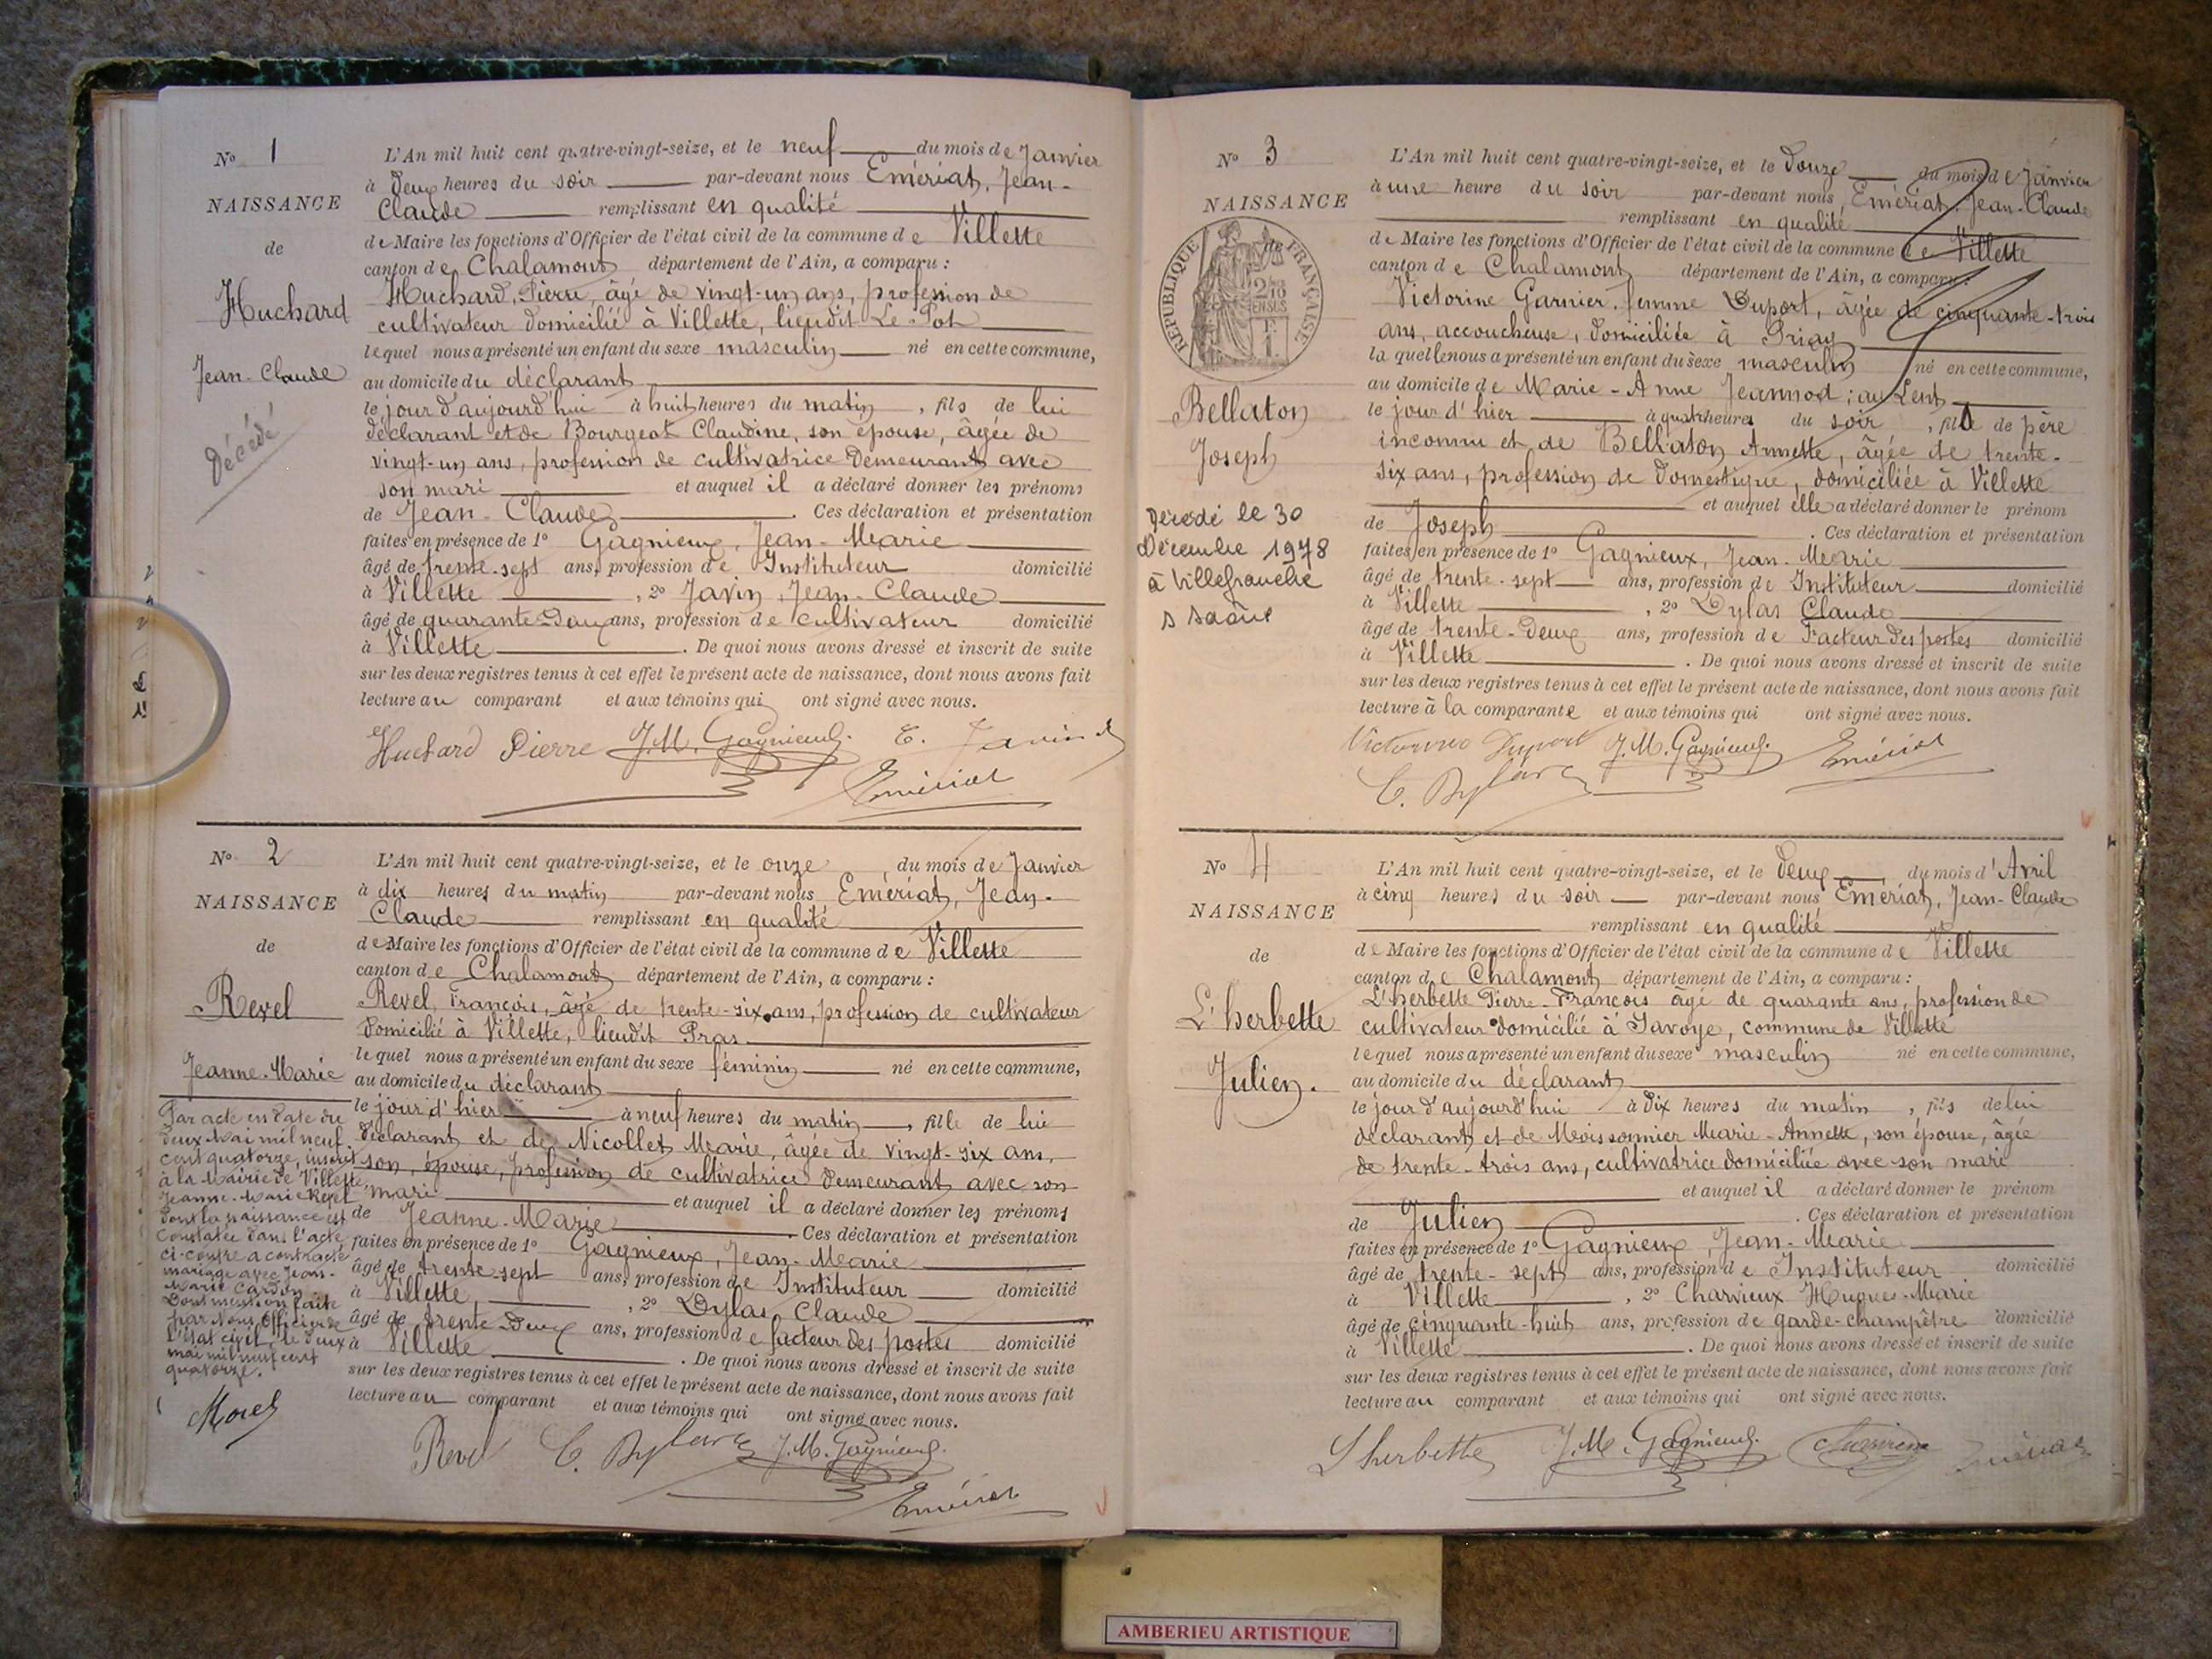 N° 1
NAISSANCE
de
Huchard
Jean-Claude
Décédé
L'An mil huit cent quatre-vingt-seize, et le neuf du mois de Janvier
à deux heures du soir par-devant nous Emériat, Jean-
Claude remplissant en qualité
de Maire les fonctions d'Officier de l'état civil de la commune de Villette
canton de Chalamont département de l'Ain, a comparu :
Huchard, Pierre, âgé de vingt-un ans, profession de
cultivateur domicilié à Villette, lieudit Le-Pot
lequel nous a présenté un enfant du sexe masculin né en cette commune,
au domicile du déclarant
le jour d'aujourd'hui à huit heures du matin, fils de lui
déclarant et de Bourgeat Claudine, son épouse, âgée de
vingt-un ans, profession de cultivatrice demeurant avec
son mari et auquel il a déclaré donner les prénoms
de Jean-Claude. Ces déclaration et présentation
faites en présence de 1° Gagnieux, Jean-Marie
âgé de trente-sept ans, profession de Instituteur domicilié
à Villette, 2° Javin, Jean-Claude
âgé de quarante-deux ans, profession de cultivateur domicilié
à Villette. De quoi nous avons dressé et inscrit de suite
sur les deux registres tenus à cet effet le présent acte de naissance, dont nous avons fait
lecture au comparant et aux témoins qui ont signé avec nous.
Huchard Pierre J.M. Gagnieux. C. Javin
Emériat
N° 2
NAISSANCE
de
Revel
Jeanne-Marie
Par acte en date du
deux Mai mil neuf
cent quatorze, inscrit
à la Mairie de Villette,
Jeanne-Marie Revel
dont la naissance est
constatée dans l'acte
ci-contre a contracté
mariage avec Jean-
Marie Cardon.
Dont mention faite
par Nous Officier de
l'état civil, le deux
mai mil neuf cent
quatorze.
Morel
L'An mil huit cent quatre-vingt-seize, et le onze du mois de Janvier
à dix heures du matin par-devant nous Emériat, Jean-
Claude remplissant en qualité
de Maire les fonctions d'Officier de l'état civil de la commune de Villette
canton de Chalamont département de l'Ain, a comparu :
Revel, François, âgé de trente-six ans, profession de cultivateur
domicilié à Villette, lieudit Pras
lequel nous a présenté un enfant du sexe féminin né en cette commune,
au domicile du déclarant
le jour d'hier à neuf heures du matin, fille de lui
déclarant et de Nicollet Marie, âgée de vingt-six ans,
son épouse, profession de cultivatrice demeurant avec son
mari et auquel il a déclaré donner les prénoms
de Jeanne-Marie. Ces déclaration et présentation
faites en présence de 1° Gagnieux, Jean-Marie
âgé de trente-sept ans, profession de Instituteur domicilié
à Villette, 2° Dylas, Claude
âgé de trente-deux ans, profession de facteur des postes domicilié
à Villette. De quoi nous avons dressé et inscrit de suite
sur les deux registres tenus à cet effet le présent acte de naissance, dont nous avons fait
lecture au comparant et aux témoins qui ont signé avec nous.
Revel C. Dylas J.M. Gagnieux.
Emériat
N° 3
NAISSANCE
de
RÉPUBLIQUE FRANÇAISE
Bellaton
Joseph
Décédé le 30
Décembre 1978
à Villefranche
s saône
L'An mil huit cent quatre-vingt-seize, et le douze du mois de Janvier
à une heure du soir par-devant nous Emériat, Jean-Claude
remplissant en qualité
de Maire les fonctions d'Officier de l'état civil de la commune de Villette
canton de Chalamont département de l'Ain, a comparu :
Victorine Garnier, femme Duport, âgée de cinquante-trois
ans, accoucheuse, domiciliée à Priay
laquelle nous a présenté un enfant du sexe masculin né en cette commune,
au domicile de Marie-Anne Jeannod ; au Lent
le jour d'hier à quatre heures du soir, fils de père
inconnu et de Bellaton Annette, âgée de trente-
six ans, profession de domestique, domiciliée à Villette
et auquel elle a déclaré donner le prénom
de Joseph. Ces déclaration et présentation
faites en présence de 1° Gagnieux, Jean-Marie
âgé de trente-sept ans, profession de Instituteur domicilié
à Villette, 2° Dylas Claude
âgé de trente-deux ans, profession de Facteur des postes domicilié
à Villette. De quoi nous avons dressé et inscrit de suite
sur les deux registres tenus à cet effet le présent acte de naissance, dont nous avons fait
lecture à la comparante et aux témoins qui ont signé avec nous.
Victorine Duport J.M. Gagnieux. Emériat
C. Dylas
N° 4
NAISSANCE
de
L'herbette
Julien.
L'An mil huit cent quatre-vingt-seize, et le deux du mois d'Avril
à cinq heures du soir par-devant nous Emériat, Jean-Claude
remplissant en qualité
de Maire les fonctions d'Officier de l'état civil de la commune de Villette
canton de Chalamont département de l'Ain, a comparu :
L'herbette Pierre-François âgé de quarante ans, profession de
cultivateur domicilié à Savoye, commune de Villette
lequel nous a présenté un enfant du sexe masculin né en cette commune,
au domicile du déclarant
le jour d'aujourd'hui à dix heures du matin, fils de lui
déclarant et de Moissonnier Marie-Annette, son épouse, âgée
de trente-trois ans, cultivatrice domiciliée avec son mari
et auquel il a déclaré donner le prénom
de Julien. Ces déclaration et présentation
faites en présence de 1° Gagnieux, Jean-Marie
âgé de trente-sept ans, profession de Instituteur domicilié
à Villette, 2° Charvieux Hugues-Marie
âgé de cinquante-huit ans, profession de garde-champêtre domicilié
à Villette. De quoi nous avons dressé et inscrit de suite
sur les deux registres tenus à cet effet le présent acte de naissance, dont nous avons fait
lecture au comparant et aux témoins qui ont signé avec nous.
Lherbette J.M. Gagnieux. Charvieux Emériat
AMBERIEU ARTISTIQUE